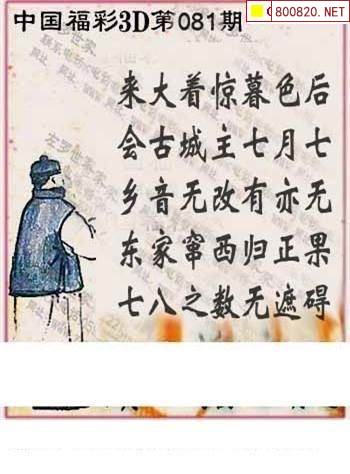 中国福彩3D第081期
800820.NET
来大着惊暮色后
会古城主七月七
乡音无改有亦无
东家窜西归正果
七八之数无遮碍